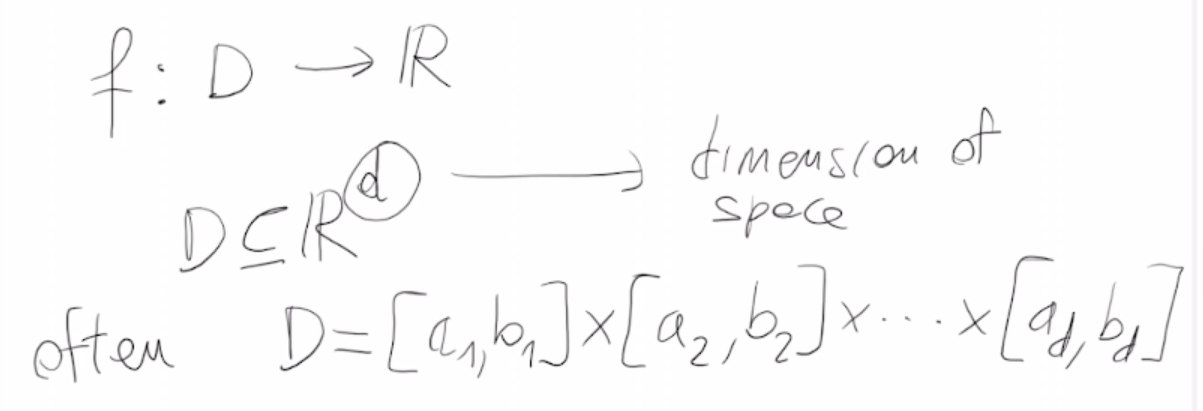 f : D → ℝ
D ⊆ ℝ^d → dimension of
space
often D = [a₁, b₁] × [a₂, b₂] × ... × [a_d, b_d]